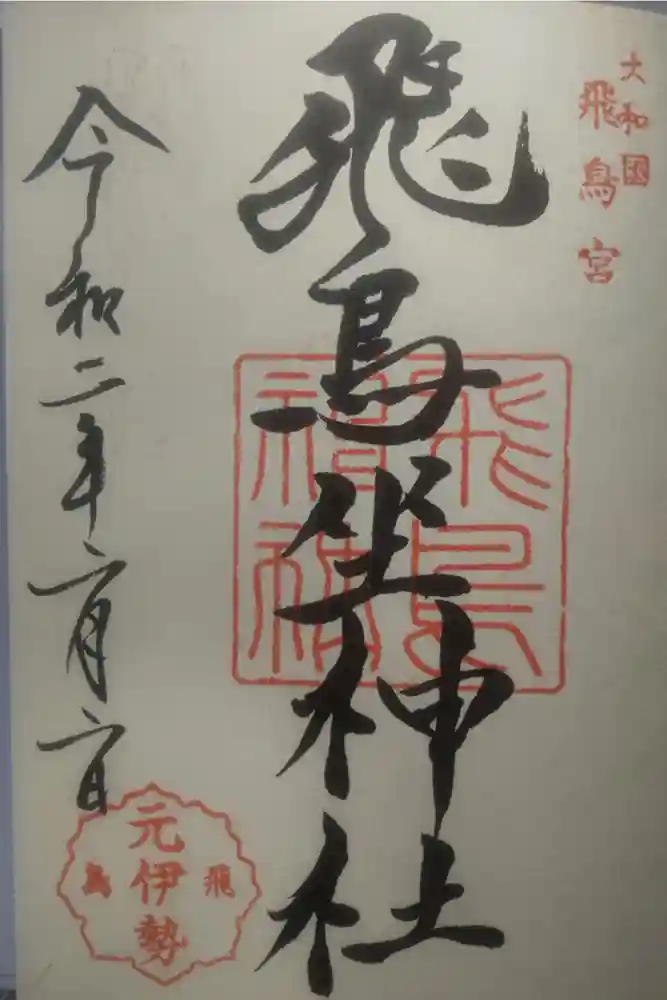 大和國
飛鳥宮
飛鳥坐神社
飛鳥
令和二年二月二日
元伊勢
飛鳥